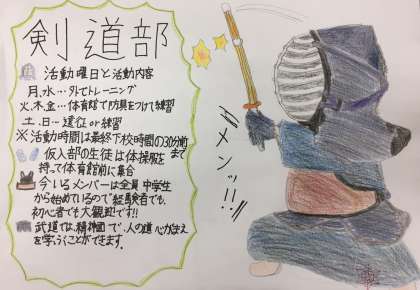 剣道部
活動曜日と活動内容
月、水…外でトレーニング
火、木、金…体育館で防具をつけて練習
土、日…遠征or練習
※活動時間は最終下校時間の30分前まで
仮入部の生徒は体操服を
持って体育館前に集合
今いるメンバーは全員中学生
から始めているので経験者でも、
初心者でも大歓迎です!!
武道では、精神面で、人の道、心がまえ
を学ぶことができます。
メンッ!!